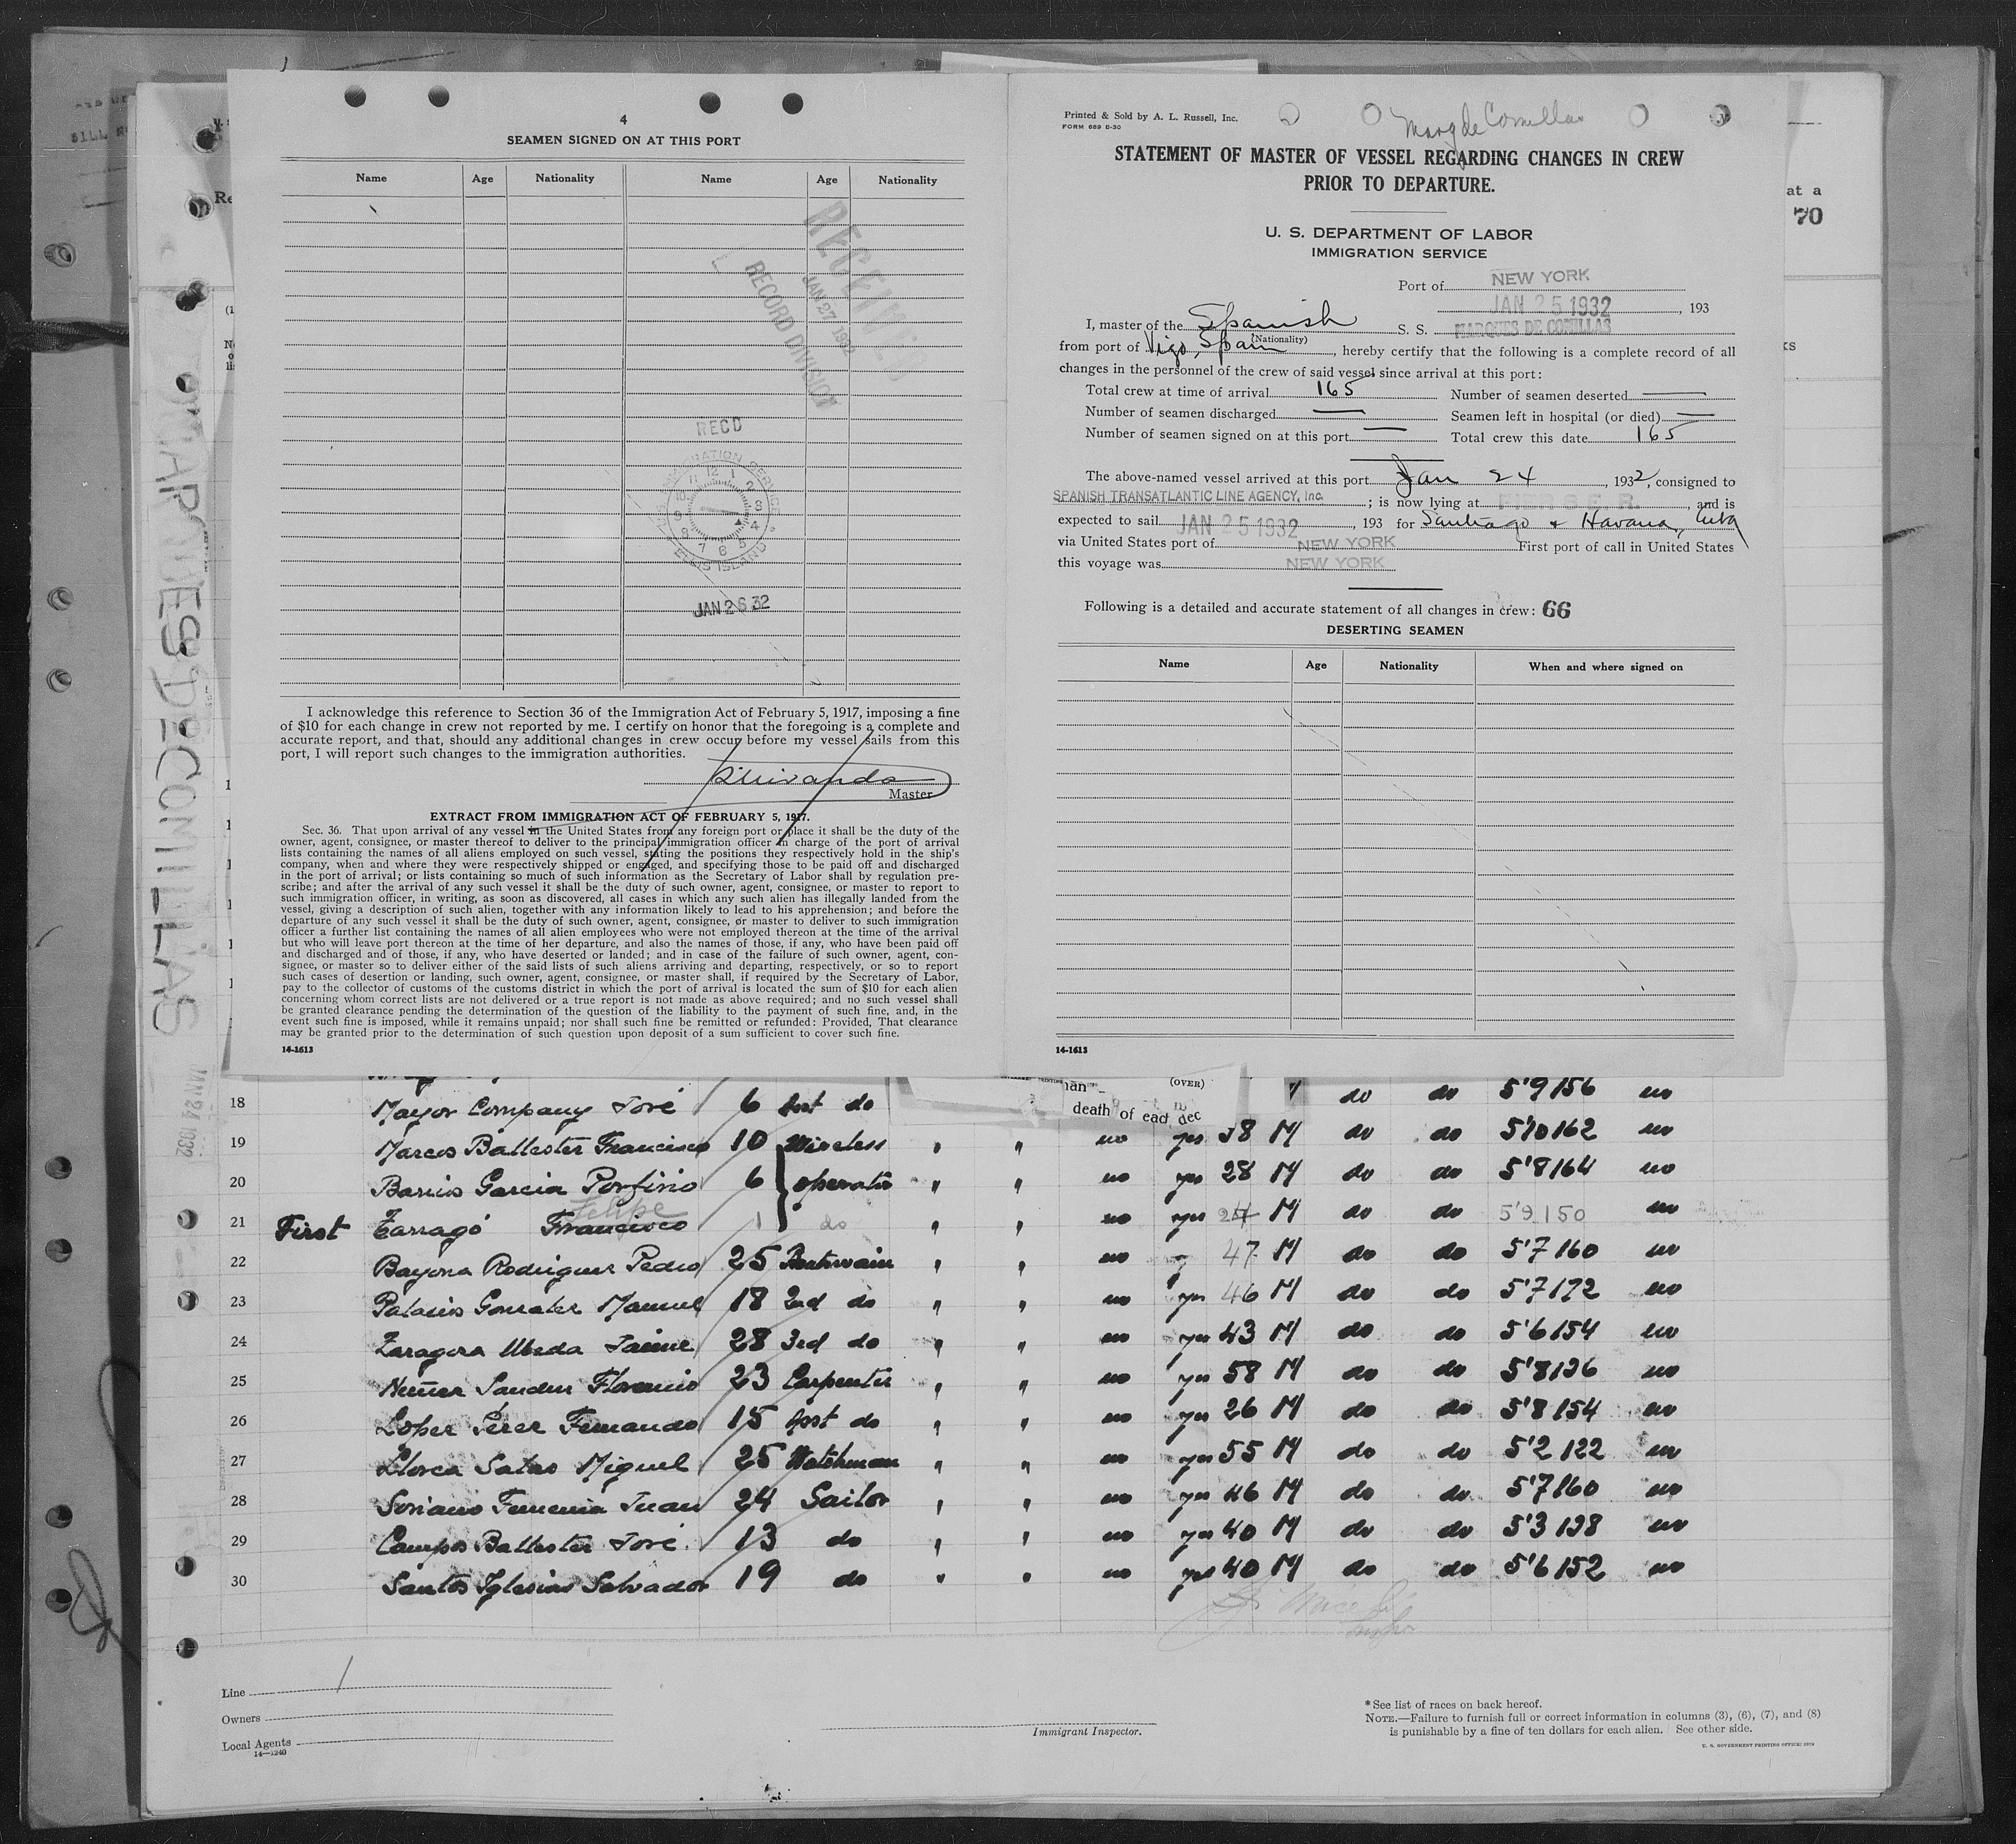 4
SEAMEN SIGNED ON AT THIS PORT
Name Age Nationality Name Age Nationality
RECEIVED
JAN 27 1932
RECORD DIVISION
RECD
IMMIGRATION SERVICE
ELLIS ISLAND
JAN 26 32
I acknowledge this reference to Section 36 of the Immigration Act of February 5, 1917, imposing a fine
of $10 for each change in crew not reported by me. I certify on honor that the foregoing is a complete and
accurate report, and that, should any additional changes in crew occur before my vessel sails from this
port, I will report such changes to the immigration authorities.
Master
EXTRACT FROM IMMIGRATION ACT OF FEBRUARY 5, 1917.
Sec. 36. That upon arrival of any vessel in the United States from any foreign port or place it shall be the duty of the
owner, agent, consignee, or master thereof to deliver to the principal immigration officer in charge of the port of arrival
lists containing the names of all aliens employed on such vessel, stating the positions they respectively hold in the ship's
company, when and where they were respectively shipped or engaged, and specifying those to be paid off and discharged
in the port of arrival; or lists containing so much of such information as the Secretary of Labor shall by regulation pre-
scribe; and after the arrival of any such vessel it shall be the duty of such owner, agent, consignee, or master to report to
such immigration officer, in writing, as soon as discovered, all cases in which any such alien has illegally landed from the
vessel, giving a description of such alien, together with any information likely to lead to his apprehension; and before the
departure of any such vessel it shall be the duty of such owner, agent, consignee, or master to deliver to such immigration
officer a further list containing the names of all alien employees who were not employed thereon at the time of the arrival
but who will leave port thereon at the time of her departure, and also the names of those, if any, who have been paid off
and discharged and of those, if any, who have deserted or landed; and in case of the failure of such owner, agent, con-
signee, or master so to deliver either of the said lists of such aliens arriving and departing, respectively, or so to report
such cases of desertion or landing, such owner, agent, consignee, or master shall, if required by the Secretary of Labor,
pay to the collector of customs of the customs district in which the port of arrival is located the sum of $10 for each alien
concerning whom correct lists are not delivered or a true report is not made as above required; and no such vessel shall
be granted clearance pending the determination of the question of the liability to the payment of such fine, and, in the
event such fine is imposed, while it remains unpaid; nor shall such fine be remitted or refunded: Provided, That clearance
may be granted prior to the determination of such question upon deposit of a sum sufficient to cover such fine.
14-1613
Printed & Sold by A. L. Russell, Inc.
FORM 689 8-30
Marq de Comillas
STATEMENT OF MASTER OF VESSEL REGARDING CHANGES IN CREW
PRIOR TO DEPARTURE.
U. S. DEPARTMENT OF LABOR
IMMIGRATION SERVICE
Port of NEW YORK
JAN 25 1932, 193
I, master of the Spanish S. S. MARQUES DE COMILLAS
(Nationality)
from port of Vigo, Spain, hereby certify that the following is a complete record of all
changes in the personnel of the crew of said vessel since arrival at this port:
Total crew at time of arrival 165 Number of seamen deserted —
Number of seamen discharged — Seamen left in hospital (or died) —
Number of seamen signed on at this port — Total crew this date 165
The above-named vessel arrived at this port Jan 24, 1932, consigned to
SPANISH TRANSATLANTIC LINE AGENCY, Inc. ; is now lying at PIER 8 E. R., and is
expected to sail JAN 25 1932, 193 for Santiago & Havana, Cuba
via United States port of NEW YORK First port of call in United States
this voyage was NEW YORK
Following is a detailed and accurate statement of all changes in crew: 66
DESERTING SEAMEN
Name Age Nationality When and where signed on
14-1613
at a
70
MARQUES DE COMILLAS
JAN 24 1932
(OVER)
death of each dec
5'9 156 no
18 Mayor Company José 6 Asst do do do
19 Marcos Ballester Francisco 10 Wireless " " no yes 38 M do do 5'10 162 no
20 Barrios Garcia Porfirio 6 operator " " no yes 28 M do do 5'8 164 no
Felipe
21 First Tarragó Francisco 1 do " " no yes 27 M do do 5'9 150 no
22 Bayona Rodriguez Pedro 25 Boatswain " " no 47 M do do 5'7 160 no
23 Palacios Gonzalez Manuel 18 2nd do " " no yes 46 M do do 5'7 172 no
24 Zaragoza Ubeda Jaime 28 3rd do " " no yes 43 M do do 5'6 154 no
25 Nuñez Florencio 23 Carpenter " " no yes 58 M do do 5'8 136 no
26 Lopez Perez Fernando 15 Asst do " " no yes 26 M do do 5'8 154 no
27 Llorca Salas Miguel 25 Watchman " " no yes 55 M do do 5'2 122 no
28 Soriano Juan 24 Sailor " " no yes 46 M do do 5'7 160 no
29 Campos Ballester José 13 do " " no yes 40 M do do 5'3 138 no
30 Santos Iglesias Salvador 19 do " " no yes 40 M do do 5'6 152 no
Line
Owners
Local Agents
14—1240
Immigrant Inspector.
* See list of races on back hereof.
NOTE.—Failure to furnish full or correct information in columns (3), (6), (7), and (8)
is punishable by a fine of ten dollars for each alien. See other side.
U. S. GOVERNMENT PRINTING OFFICE: